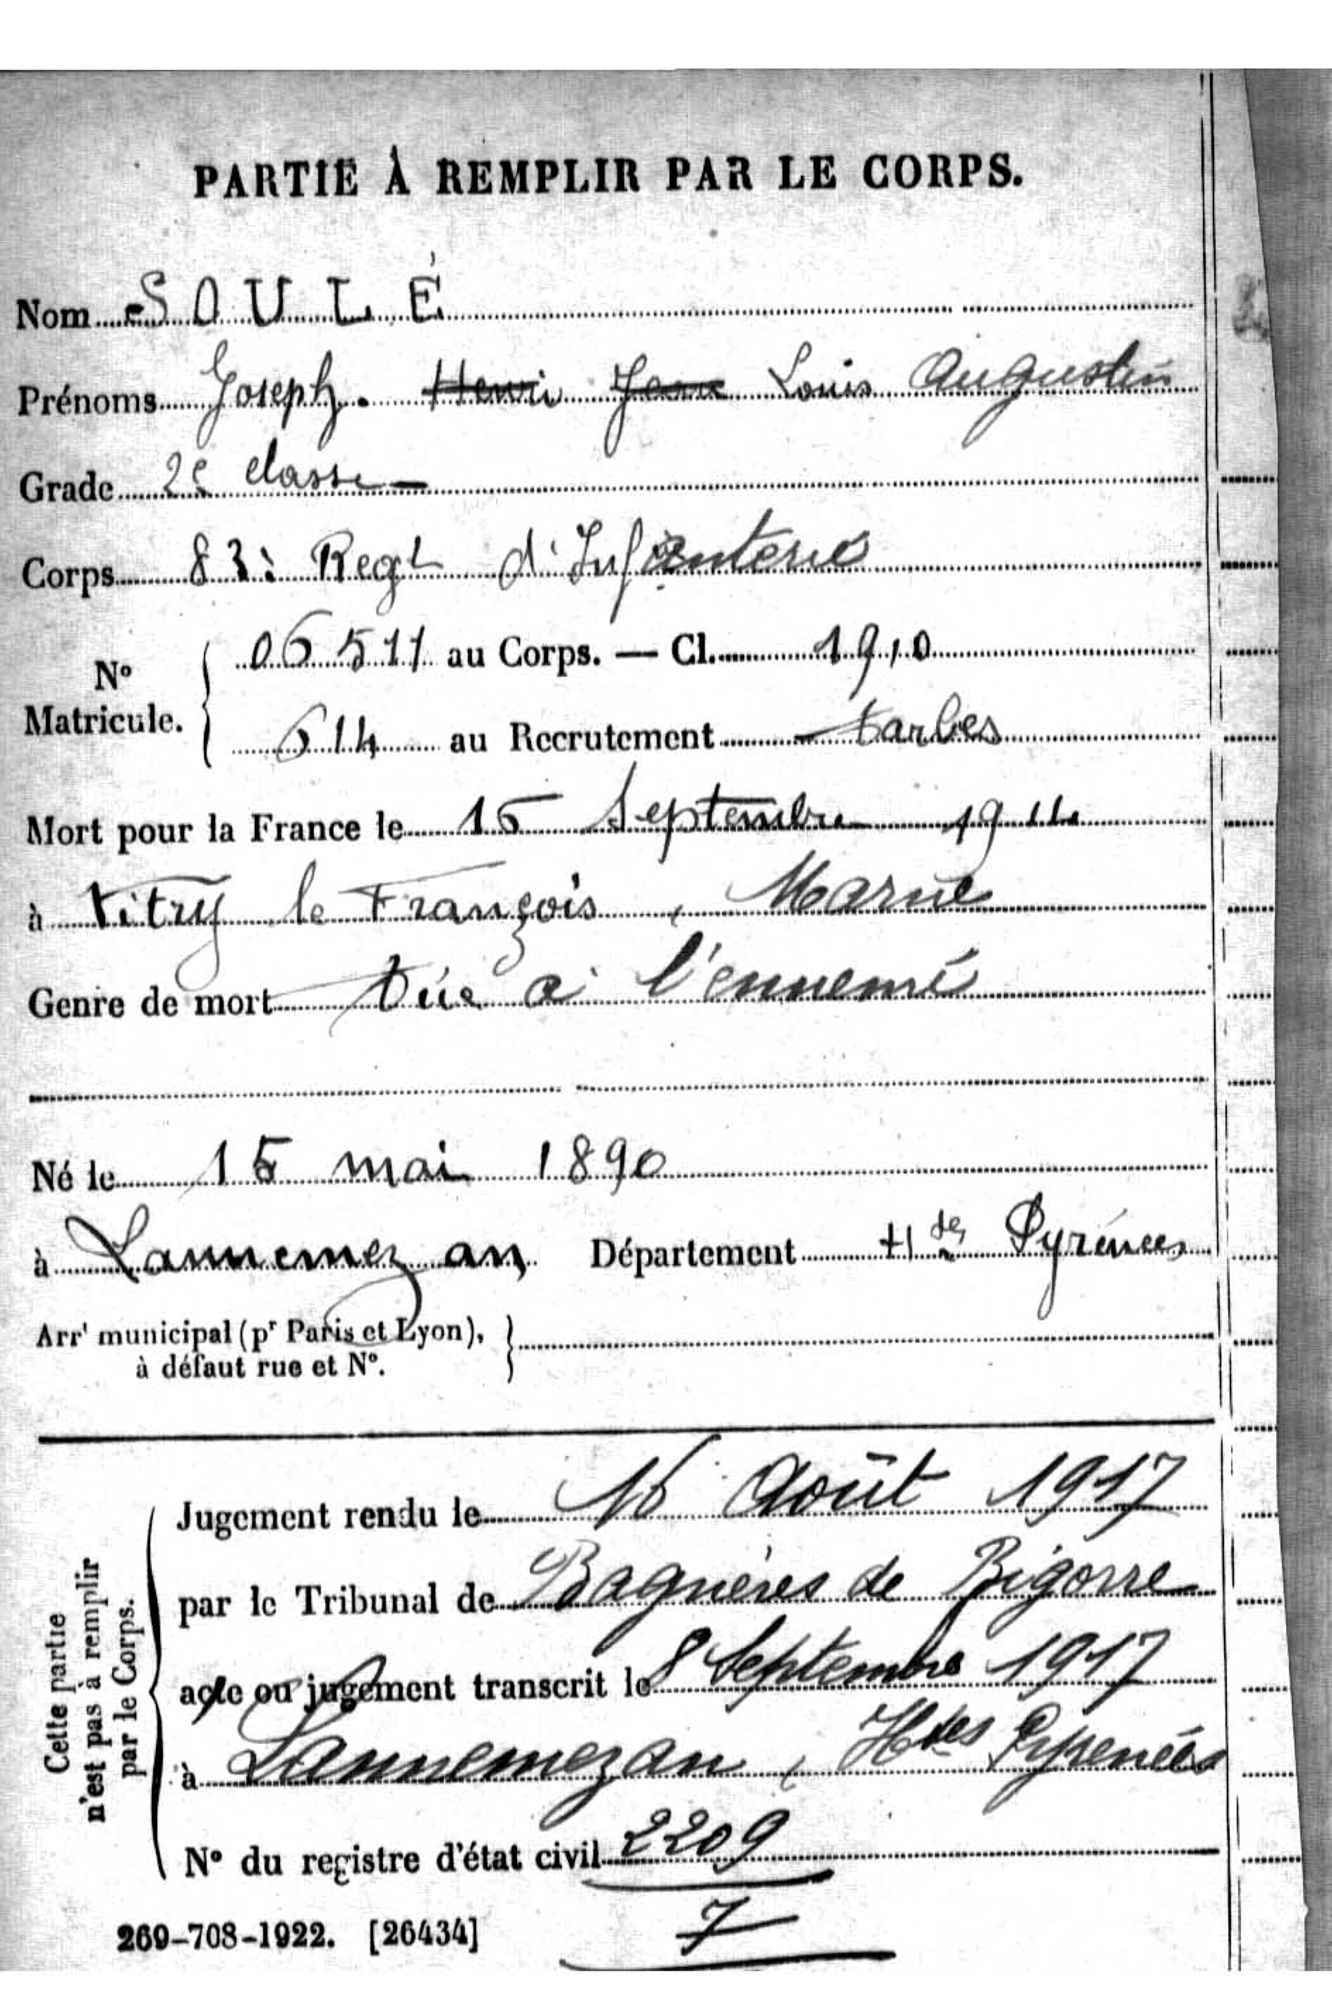 PARTIE À REMPLIR PAR LE CORPS.
Nom SOULÉ
Prénoms Joseph. Henri Jean Louis Augustin
Grade 2e classe
Corps 83: Regt d'Infanterie
No
Matricule.
06511 au Corps. — Cl. 1910
614 au Recrutement tarbes
Mort pour la France le 15 Septembre 1914
à Vitry le François, Marne
Genre de mort tué a l'ennemi
Né le 15 mai 1890
à Lannemezan Département Htes Pyrénées
Arrt municipal (pr Paris et Lyon),
à défaut rue et No.
Cette partie
n'est pas à remplir
par le Corps.
Jugement rendu le 16 Août 1917
par le Tribunal de Bagnères de Bigorre
acte ou jugement transcrit le 8 Septembre 1917
à Lannemezan, Htes Pyrénées
No du registre d'état civil 2209
7
269-708-1922. [26434]